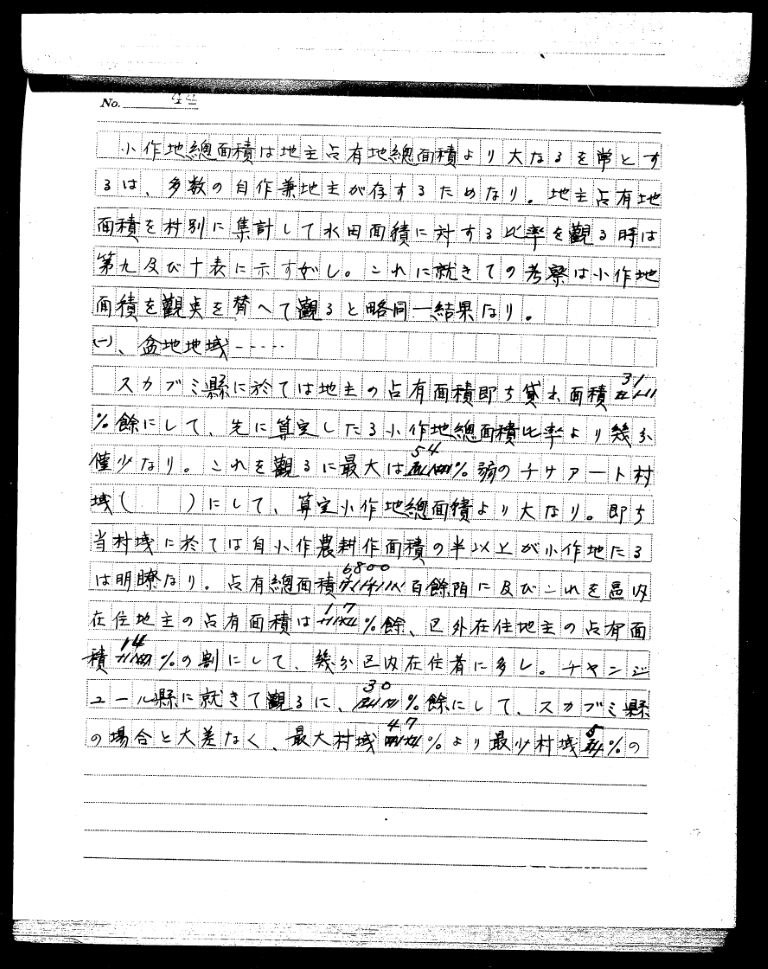 No.
小作地總面積は地主占有地總面積より大なるを常とす
るは、多数の自作兼地主が存するためなり。地主占有地
面積を村別に集計して水田面積に対する比率を觀る時は
第九及び十表に示すが如し。これに就きての考察は小作地
面積を觀点を替へて觀ると略同一結果なり。
(一)、盆地地域-----
スカブミ縣に於ては地主の占有面積即ち貸付面積31
%餘にして、先に算定したる小作地總面積比率より幾分
僅少なり。これを觀るに最大は54%強のチサアート村
域(　　)にして、算定小作地總面積より大なり。即ち
当村域に於ては自小作農耕作面積の半以上が小作地たる
は明瞭なり。占有總面積6800百餘陌に及びこれを區内
在住地主の占有面積は17%餘、区外在住地主の占有面
積14%の割にして、幾分区内在住者に多し。チャンジ
ユール縣に就きて觀るに、30%餘にして、スカブミ縣
の場合と大差なく、最大村域47%より最少村域5%の